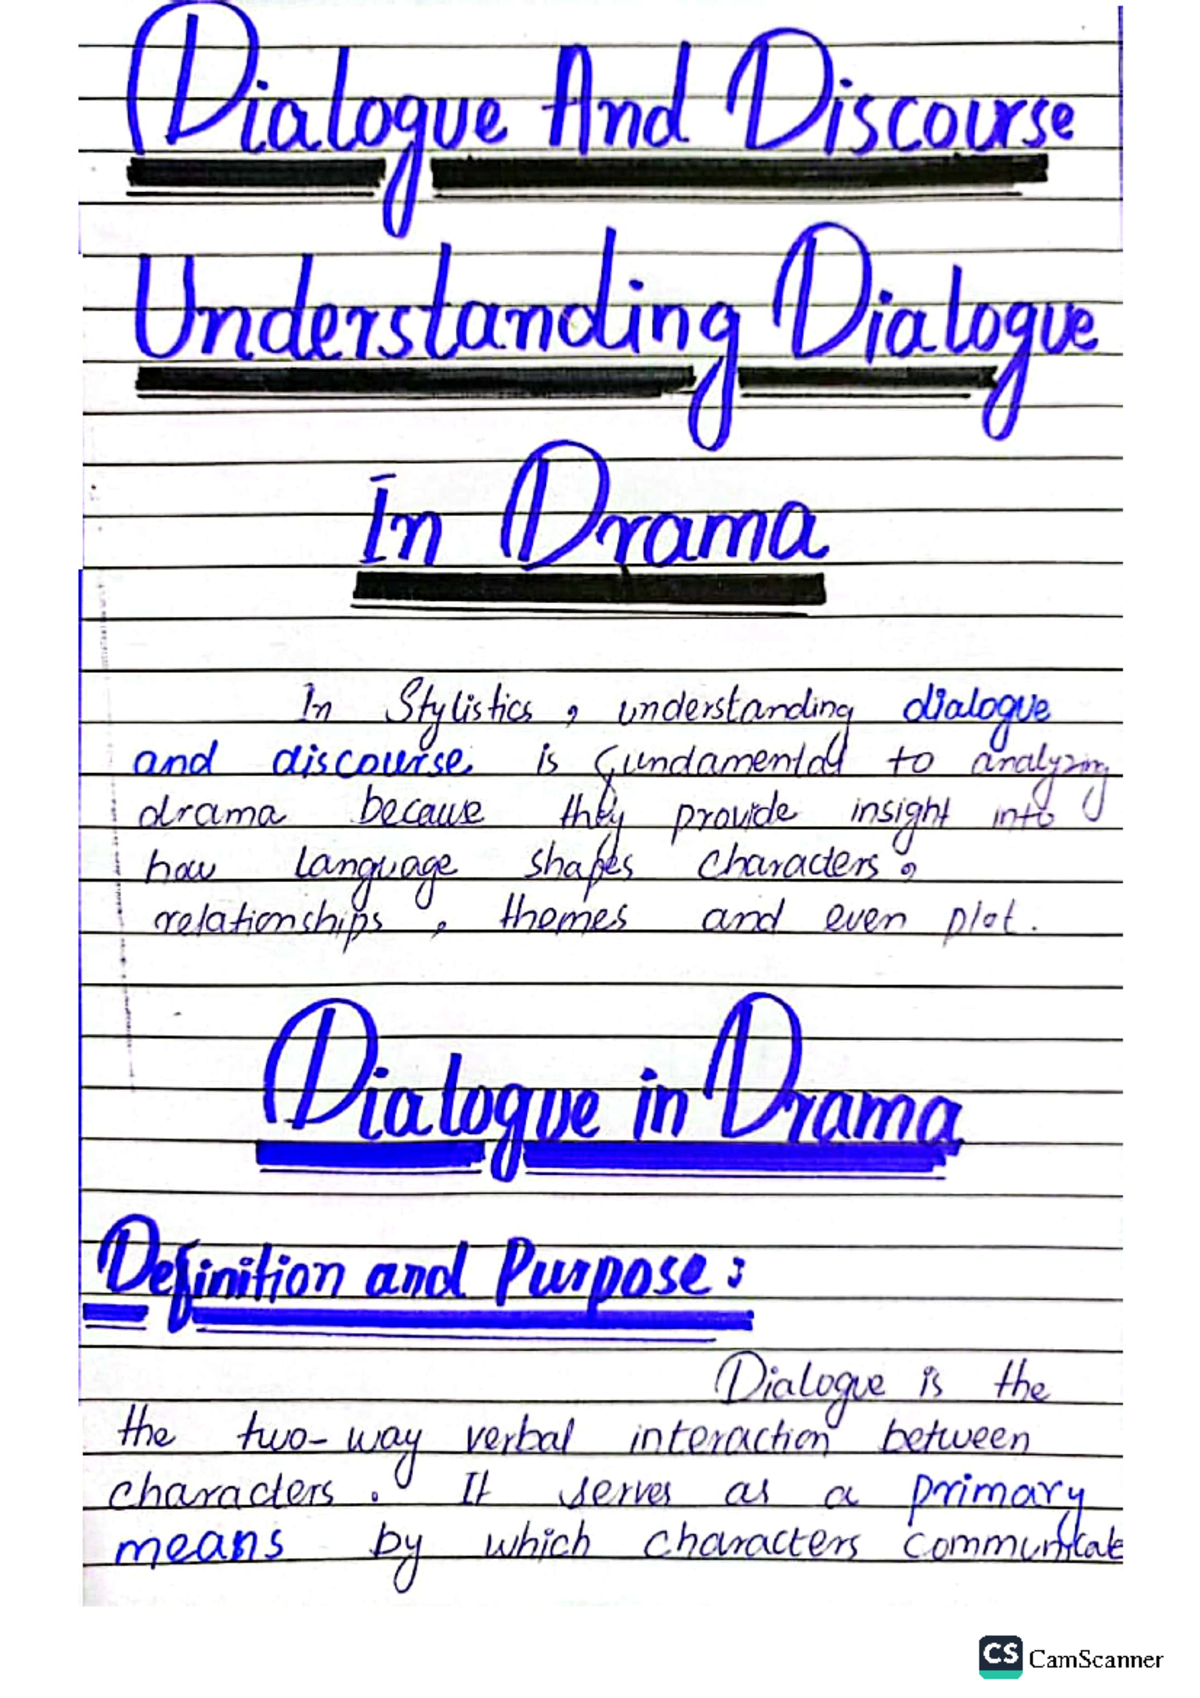 Dialogue And Discourse
Understanding Dialogue
In Drama
In Stylistics, understanding dialogue
and discourse is fundamental to analyzing
drama because they provide insight into
how language shapes characters,
relationships, themes and even plot.
Dialogue in Drama
Definition and Purpose:
Dialogue is the
the two-way verbal interaction between
characters. It serves as a primary
means by which characters communicate
CS CamScanner